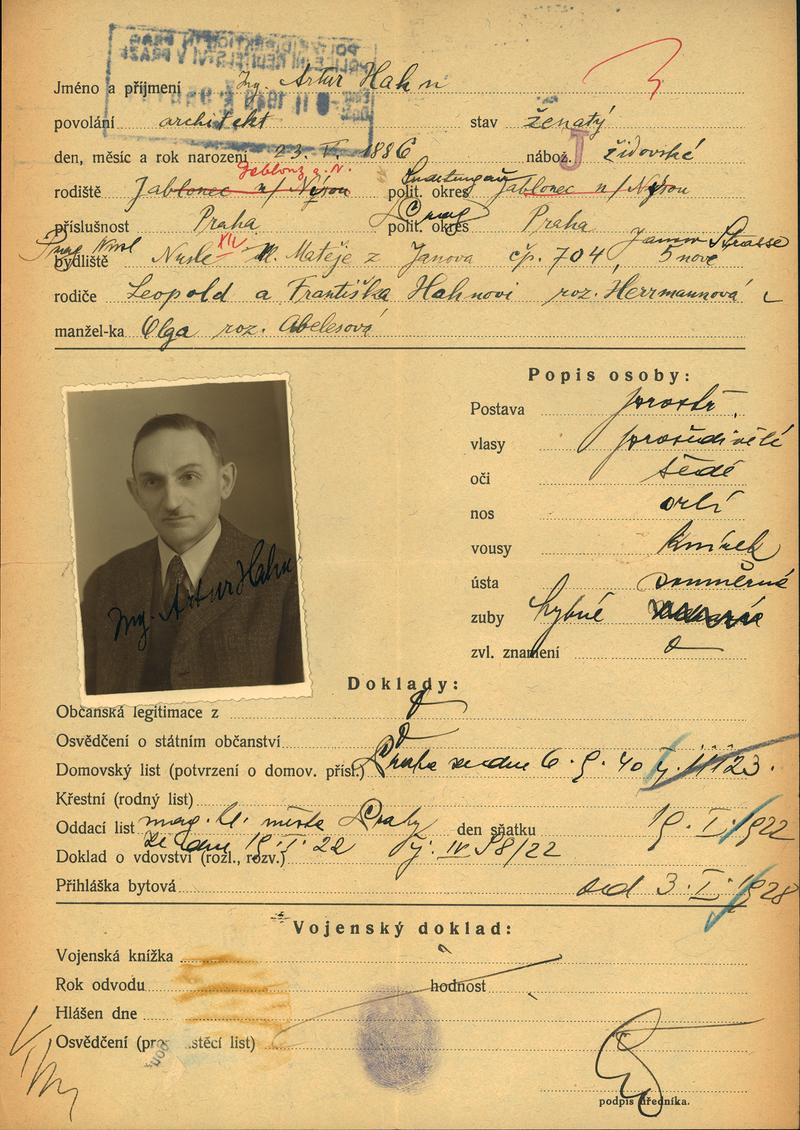 Jméno a příjmení Ing. Artur Hahn
povolání architekt stav ženatý
den, měsíc a rok narození 23. V. 1886 nábož. židovské
J
Jablonz a. N. Sudetengau
rodiště Jablonec n/Nisou polit. okres Jablonec n/Nisou
Prag
příslušnost Praha polit. okres Praha
Prag XIV Janov Strasse
bydliště Nusle M. Matěje z Janova čp. 704, 5 nové
rodiče Leopold a Františka Hahnovi roz. Herrmannová
manžel-ka Olga roz. Abelesová
Popis osoby:
Postava prostř.
vlasy prošedivělé
oči šedé
nos orlí
vousy knírek
ústa souměrné
zuby chybné
zvl. znamení
Ing. Artur Hahn
Doklady:
Občanská legitimace z
Osvědčení o státním občanství
Domovský list (potvrzení o domov. přísl.) Praha ze dne 6. 9. 40
Křestní (rodný list)
Oddací list mag. hl. města Prahy den sňatku 19. I. 1922
ze dne 19. I. 22 čj. IV 58/22
Doklad o vdovství (rozl., rozv.)
Přihláška bytová od 3. I. 1928
Vojenský doklad:
Vojenská knížka
Rok odvodu hodnost
Hlášen dne
Osvědčení (pro stěcí list)
podpis úředníka.